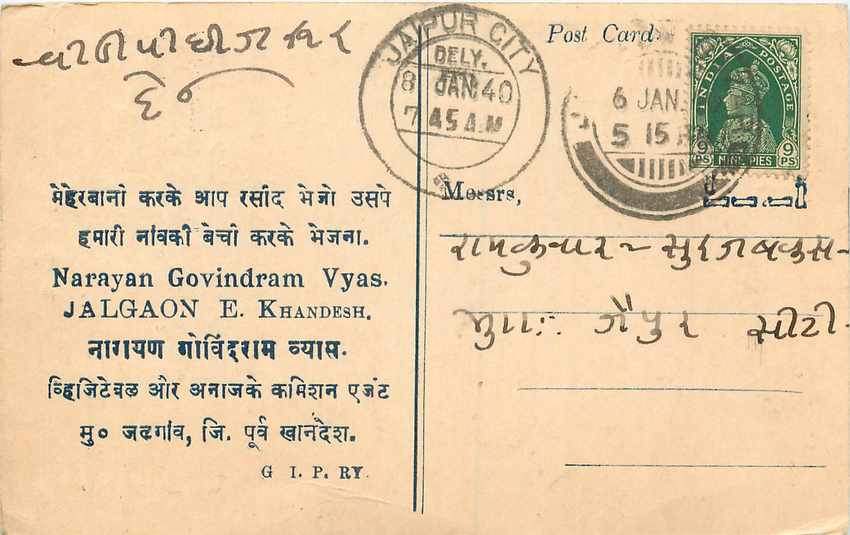 Post Card
JAIPUR CITY
DELY.
8 JAN 40
7 45 A.M
6 JAN
5 15
INDIA POSTAGE
9 PS NINE PIES 9 PS
मेहेरबानी करके आप रसीद भेजो उसपे
हमारी नांवकी बेची करके भेजना.
Narayan Govindram Vyas.
JALGAON E. KHANDESH.
नारायण गोविंदराम व्यास.
व्हिजिटेबल और अनाजके कमिशन एजंट
मु० जळगांव, जि. पूर्व खानदेश.
G I. P. RY.
Messrs,
रामकुवार - सुरजबकस -
जैपुर सीटी.